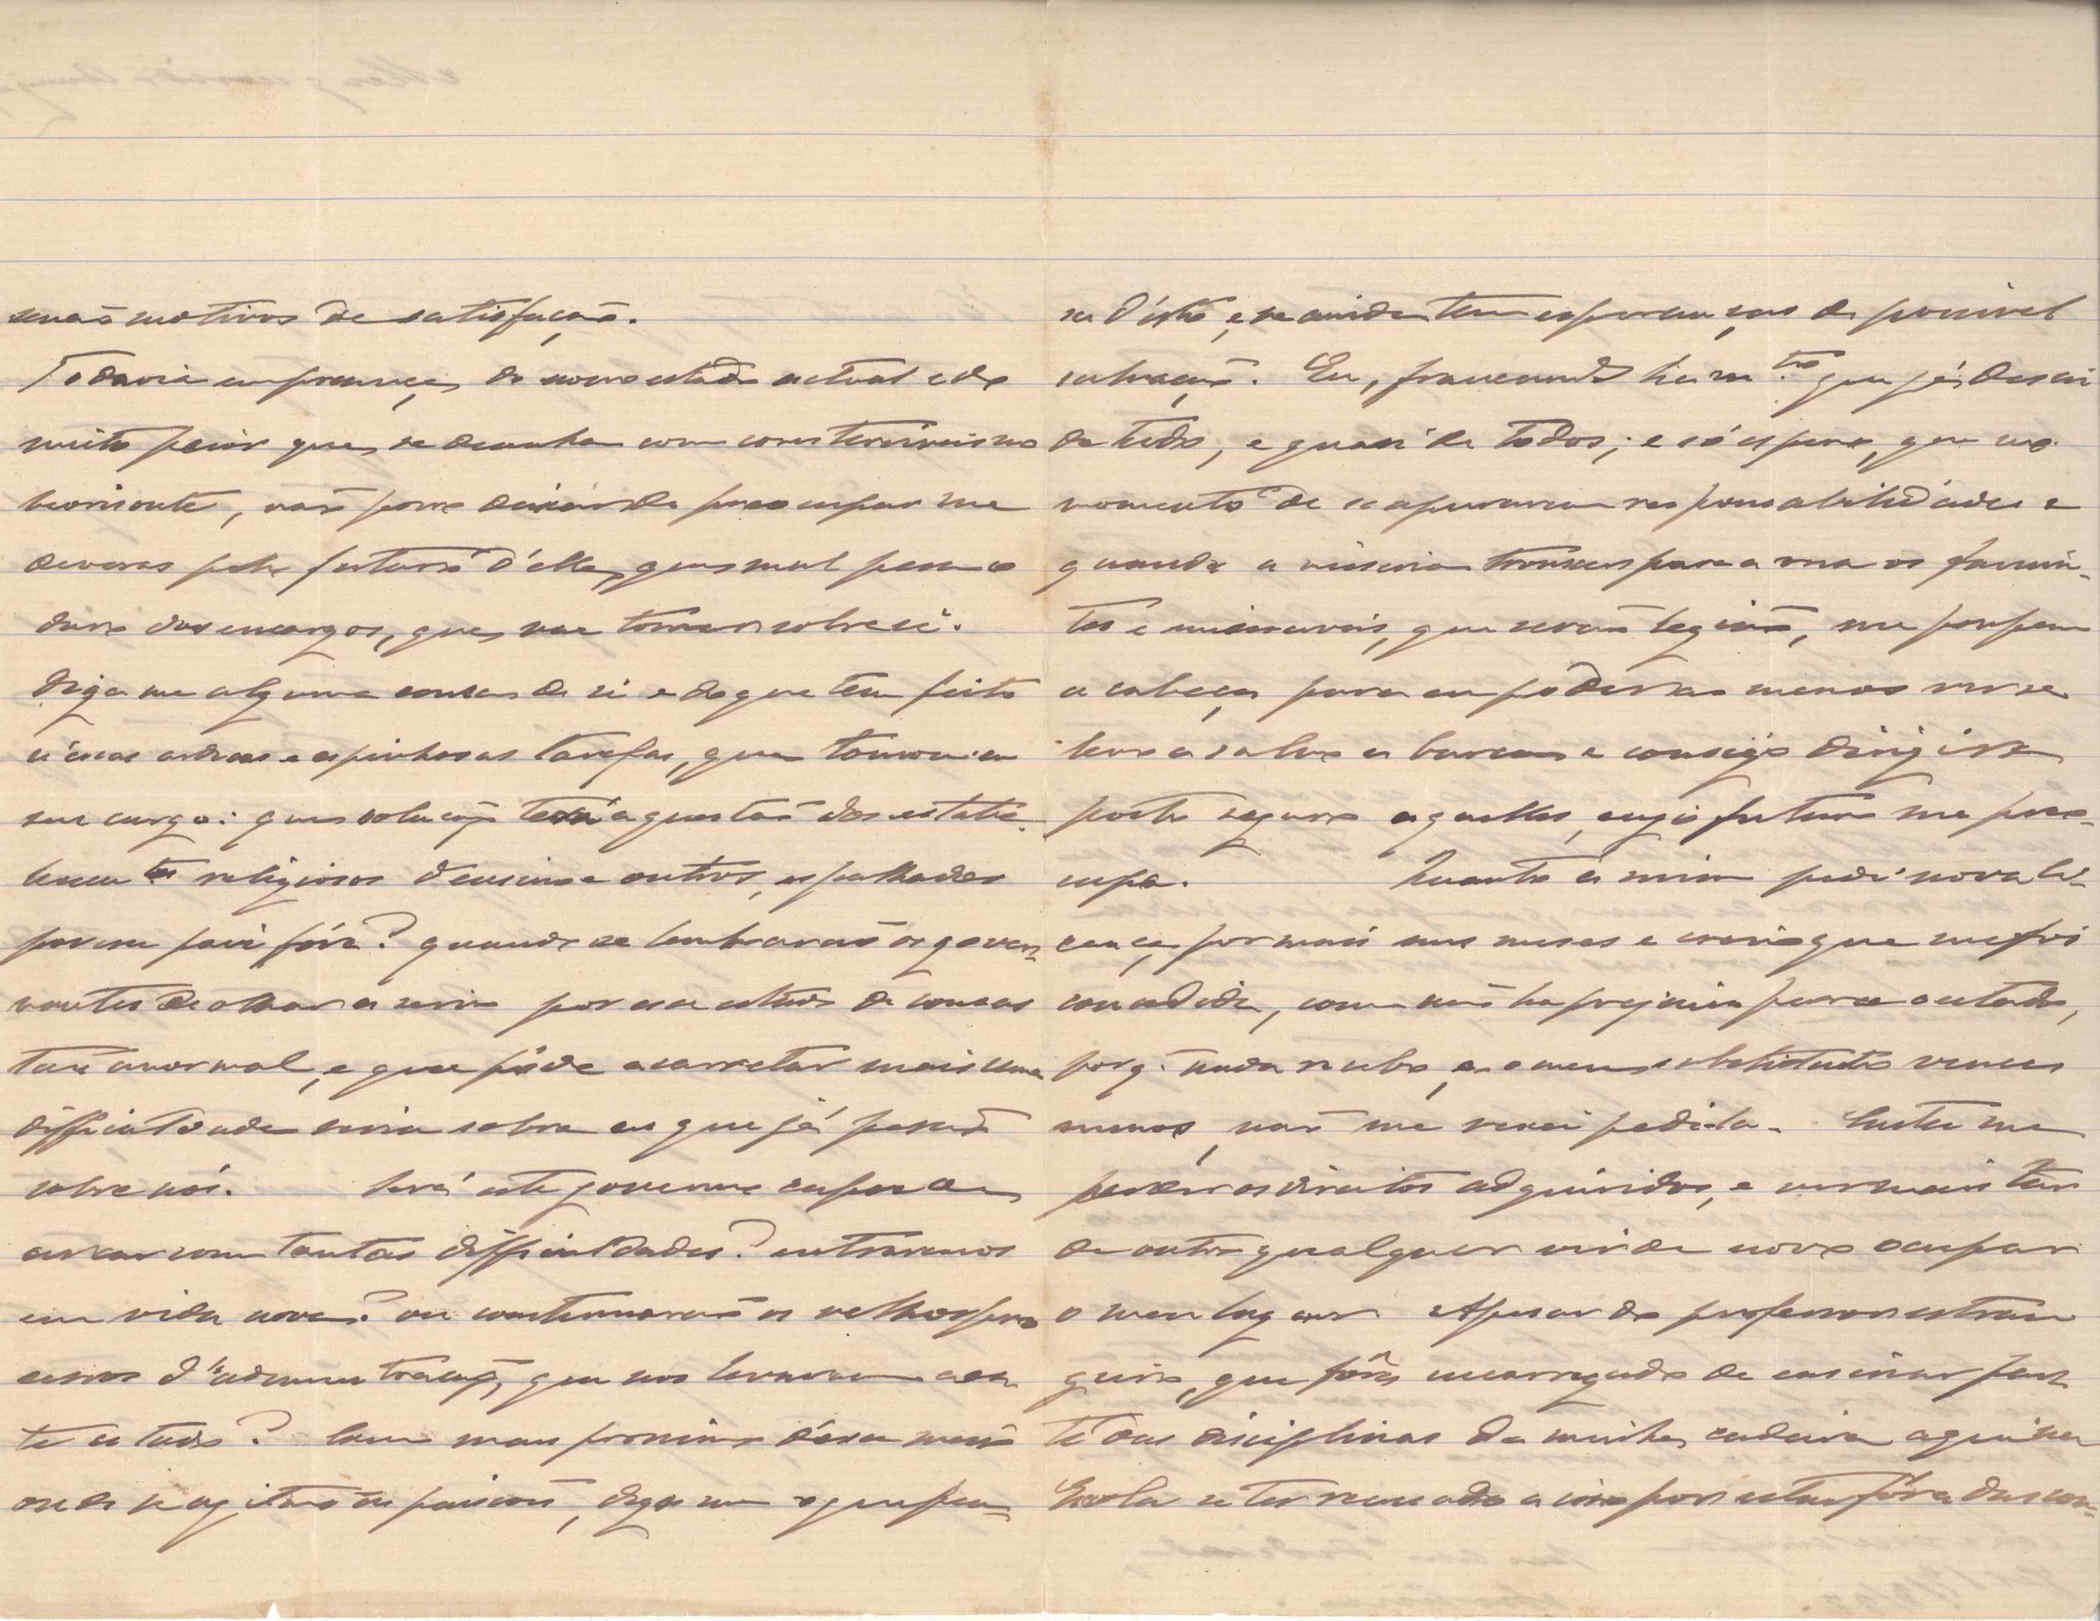 senão motivos de satisfação.
Todavia em presença do nosso estado actual e do
muito peior que se desenha com cores terriveis no
horisonte, não posso deixar de preoccupar me
deveras pelo futuro d'elle, que mal pensa o
duro dos encargos, que vae tomar sobre si.
Diga me alguma cousa de si e do que tem feito
n'essas arduas e espinhosas tarefas, que tomou a
seu cargo: que solução terá a questão dos estabe-
lecimentos religiosos d'ensino e outros, espalhados
por esse paiz fóra? quando se lembrarão os gover-
nantes de olhar a serio por esse estado de cousas
tão anormal, e que póde acarretar mais uma
difficuldade seria sobre as que já pesam
sobre nós. Será este governo capaz de
arcar com tantas difficuldades? entraremos
em vida nova? ou continuarão os velhos pro-
cessos d'administração, que nos levaram a es-
te estado? Como mais proximo d'esse meio
onde se agitão as paixões, diga me o que pen-
sa d'isto, e se ainda tem esperanças de possivel
salvação. Eu, francamente que já descri
de tudo, e quasi de todos; e só espero, que no
momento de se apurarem responsabilidades e
quando a miseria trouxer para a rua os famin-
tos e miseraveis, que serão legião, me poupem
a cabeça para eu poder ao menos ver se
levo a salvo a barca e consigo dirigir a
porto seguro aquelles, cujo futuro me preoc-
cupa. Quanto a mim pedi nova li-
cença por mais uns meses e creio que me foi
concedida, como não ha prejuizo para o estado,
porq. nada recebo, e o meu substituto vence
menos, não me será pedida. Custa me
perder os direitos adquiridos, e ver mais tarde
outro qualquer vir de novo occupar
o meu lugar. Apesar do professor estran-
geiro, que fôra encarregado de ensinar par-
te das disciplinas da minha cadeira aqui na
Escola se ter recusado a isso por estar fóra das con-